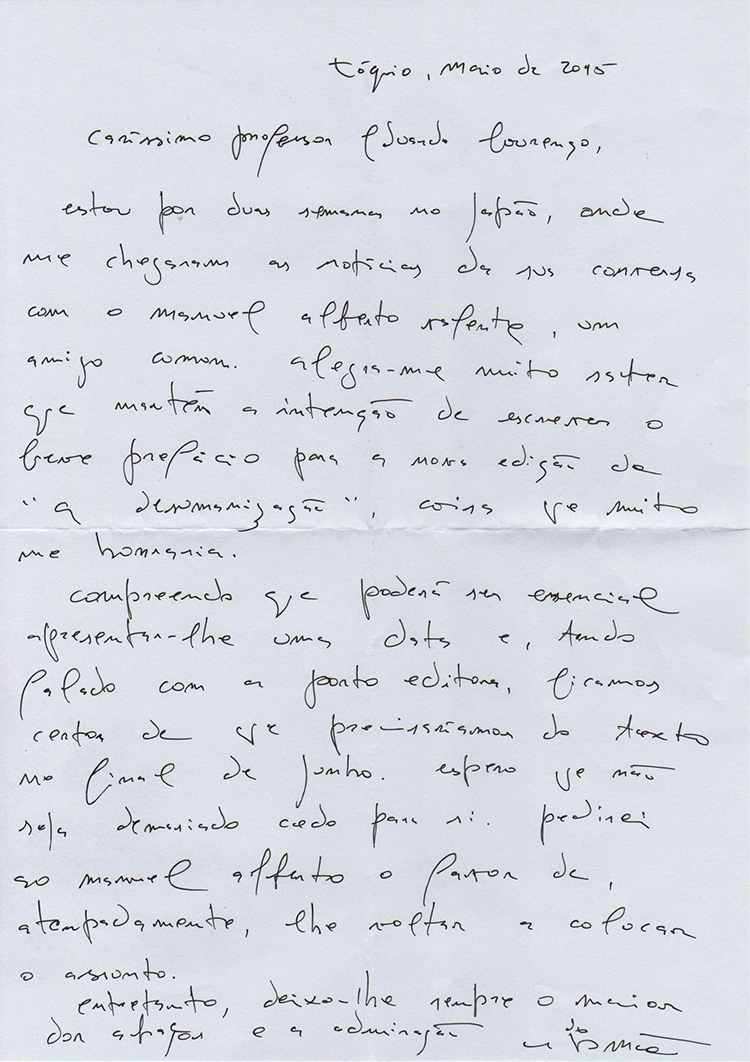 tóquio, maio de 2015
caríssimo professor eduardo lourenço,
estou por duas semanas no japão, onde
me chegaram as notícias da sua conversa
com o manuel alberto valente, um
amigo comum. alegra-me muito saber
que mantém a intenção de escrever o
breve prefácio para a nova edição de
"a desumanização", coisa que muito
me honraria.
compreendo que poderá ser essencial
apresentar-lhe uma data e, tendo
falado com a porto editora, ficamos
certos de que precisaríamos do texto
no final de junho. espero que não
seja demasiado cedo para si. pedirei
ao manuel alberto o favor de,
atempadamente, lhe voltar a colocar
o assunto.
entretanto, deixo-lhe sempre o maior
dos abraços e a admiração do